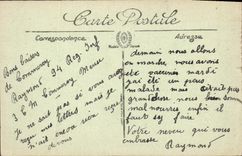 Carte Postale
Correspondance
Adresse
Bons baisers
de Commercy
Raymond 94 Reg Inf
3 C M Commercy Meuse
je ne sait pas si vous avez
reçu mes lettres mais je
n'ait encore rien reçu
de vous
demain nous allons
en marche nous avons
été vacciner mardi
j'ai été un peu
malade mais c'était pas
grand chose nous
mal nourris enfin il
faut s'y faire
Votre neveu qui vous
embrasse
Raymond